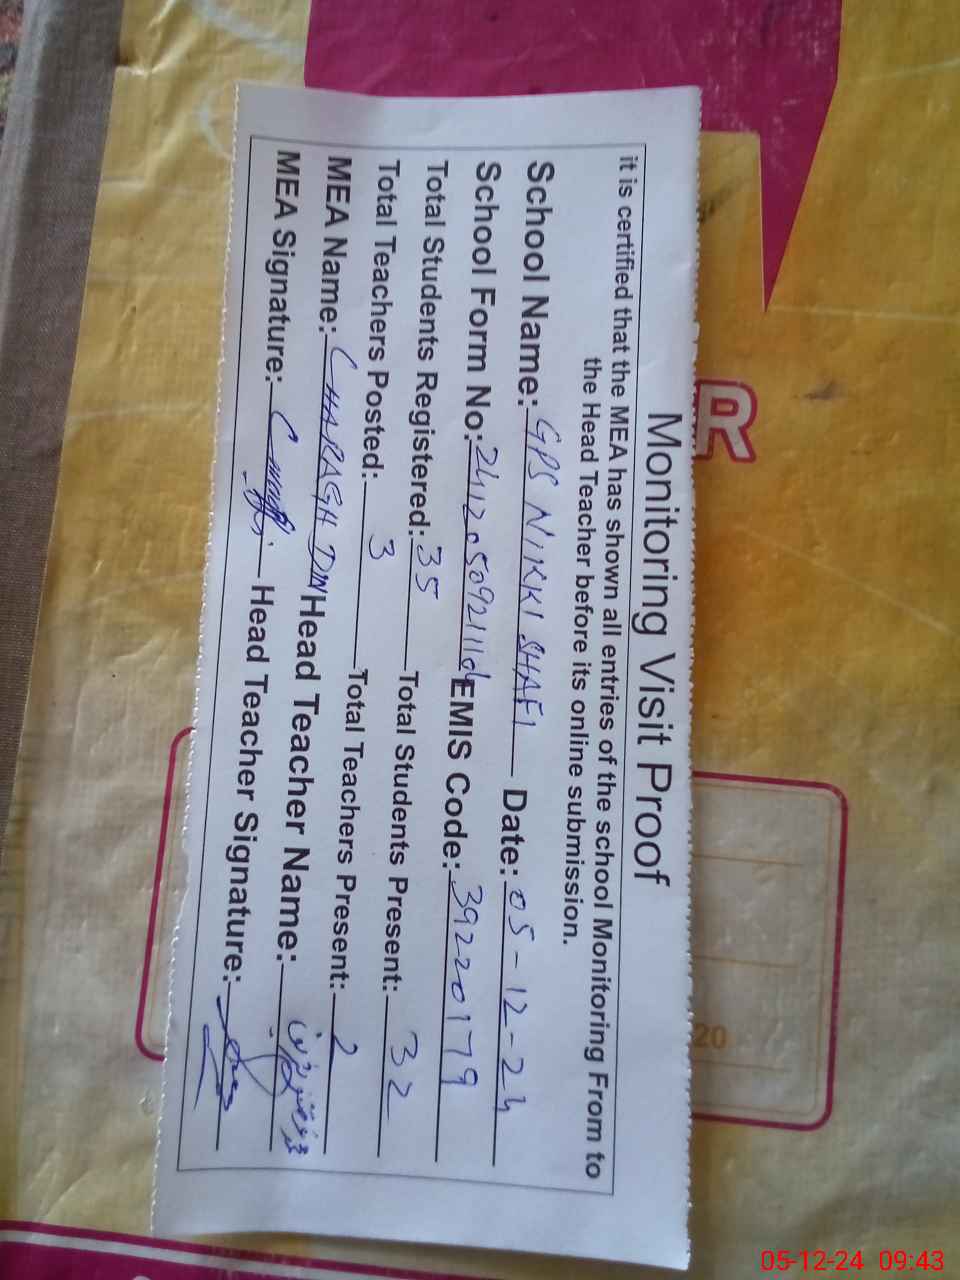 Monitoring Visit Proof
it is certified that the MEA has shown all entries of the school Monitoring From to
the Head Teacher before its online submission.
School Name: GPS NIKKI SHAFI Date: 05-12-24
School Form No: EMIS Code: 39220179
Total Students Registered: 35 Total Students Present: 32
Total Teachers Posted: 3 Total Teachers Present: 2
MEA Name: CHARAGH DIN Head Teacher Name:
MEA Signature: Head Teacher Signature:
R
20
05-12-24 09:43